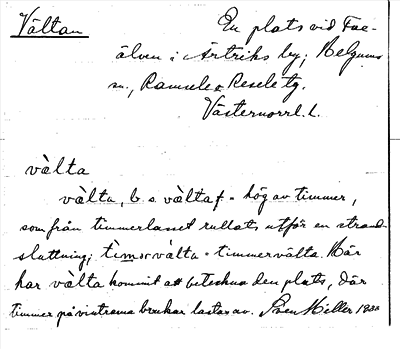 Vältan
En plats vid Fax-
älven i Ärtriks by, Helgums
sn., Ramsele o Resele tg.
Västernorrl. l.
vàlta
vàlta, b. s. vàlta f. = hög av timmer,
som från timmerlasset rullats utför en strand-
sluttning; tìmərvàlta = timmervälta. Här
har vàlta kommit att beteckna den plats, där
timmer på vintrarna brukar lastas av. Sven Hiller 1930